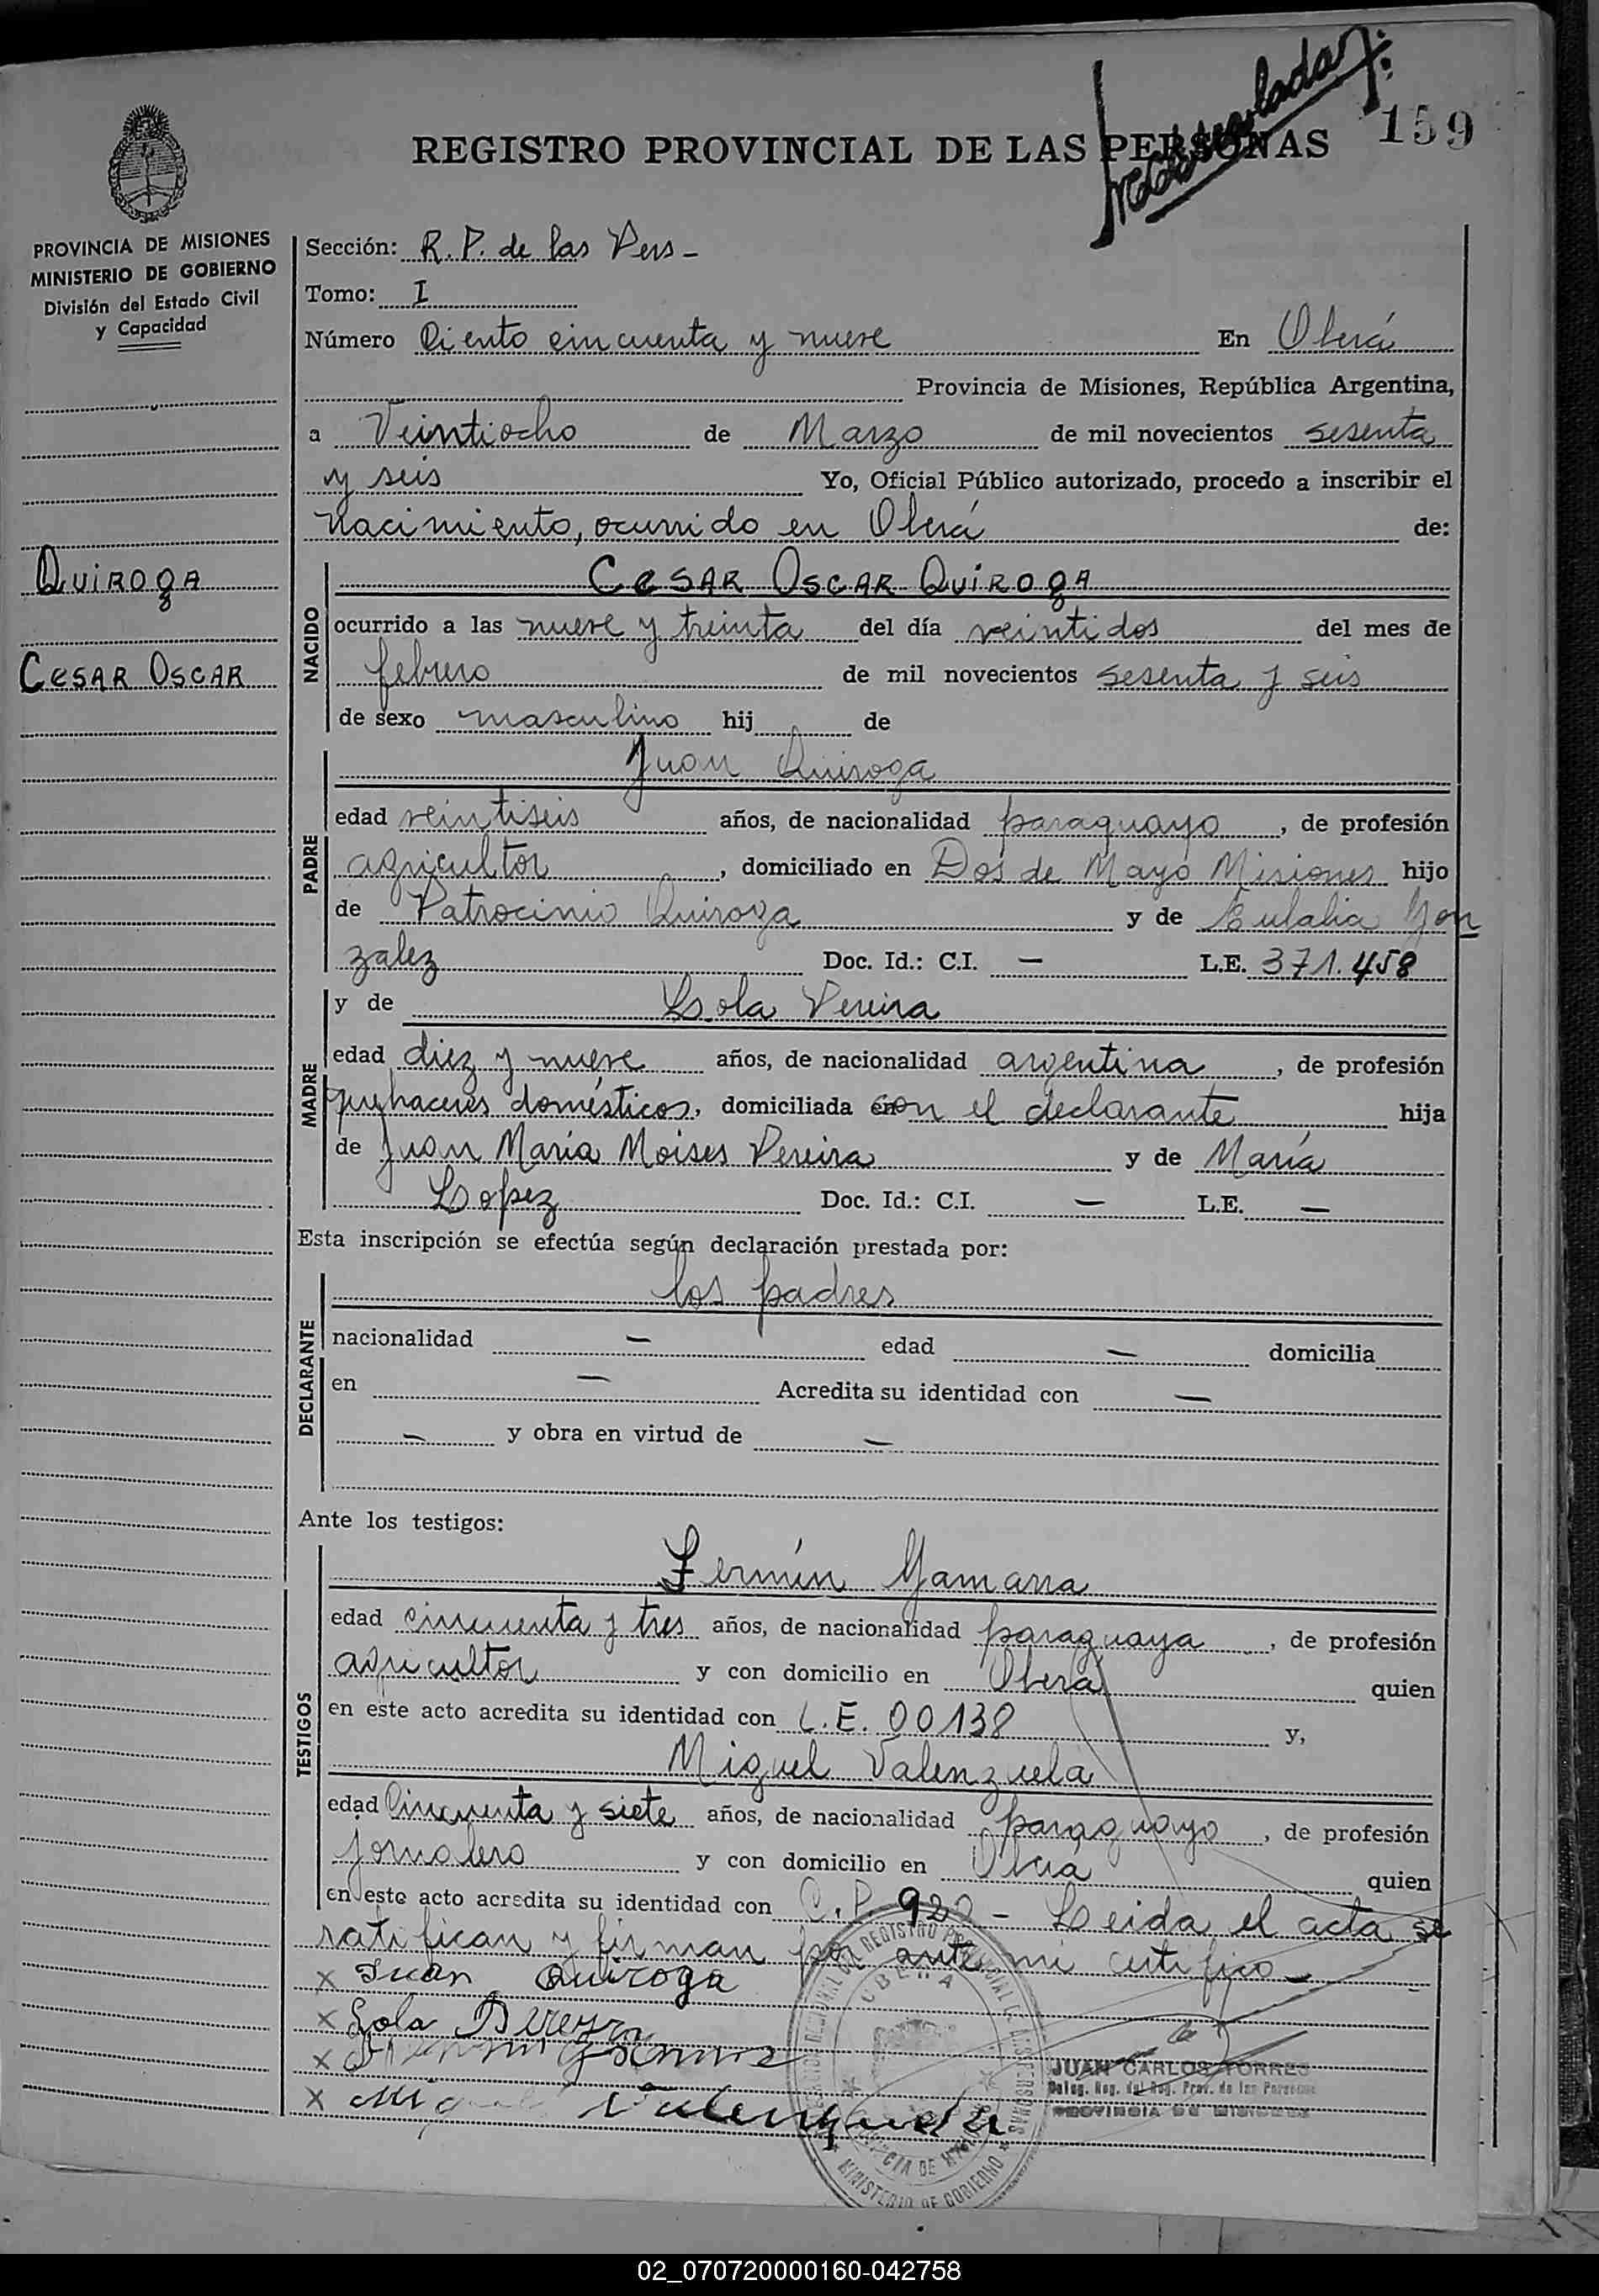 159
REGISTRO PROVINCIAL DE LAS PERSONAS
PROVINCIA DE MISIONES
MINISTERIO DE GOBIERNO
División del Estado Civil
y Capacidad
Sección: R. P. de las Pers -
Tomo: I
Número Ciento cincuenta y nueve En Oberá
Provincia de Misiones, República Argentina,
a Veintiocho de Marzo de mil novecientos sesenta
y seis Yo, Oficial Público autorizado, procedo a inscribir el
nacimiento, ocurrido en Oberá de:
QUIROGA
CESAR OSCAR
NACIDO
CESAR OSCAR QUIROGA
ocurrido a las nueve y treinta del día veintidos del mes de
febrero de mil novecientos sesenta y seis
de sexo masculino hij de
PADRE
Juan Quiroga
edad veintiseis años, de nacionalidad paraguayo, de profesión
agricultor, domiciliado en Dos de Mayo Misiones hijo
de Patrocinio Quiroga y de Eulalia Gon
zalez Doc. Id.: C.I. — L.E. 371.458
MADRE
y de Lola Pereira
edad diez y nueve años, de nacionalidad argentina, de profesión
quehaceres domésticos, domiciliada en con el declarante hija
de Juan María Moises Pereira y de María
Lopez Doc. Id.: C.I. — L.E. —
Esta inscripción se efectúa según declaración prestada por:
DECLARANTE
los padres
nacionalidad — edad — domicilia
en — Acredita su identidad con —
— y obra en virtud de —
Ante los testigos:
TESTIGOS
Fermín Gamarra
edad cincuenta y tres años, de nacionalidad paraguaya, de profesión
agricultor y con domicilio en Oberá quien
en este acto acredita su identidad con L.E. 00138 y,
Miguel Valenzuela
edad Cincuenta y siete años, de nacionalidad paraguayo, de profesión
jornalero y con domicilio en Oberá quien
en este acto acredita su identidad con C.P. 920 - Leida el acta se
ratifican y firman por ante mi certifico -
x Juan Quiroga
x Lola Pereyra
x
x Miguel Valenzuela
JUAN CARLOS TORRES
Deleg. Reg. del Reg. Prov. de las Personas
PROVINCIA DE MISIONES
OBERA
MINISTERIO DE GOBIERNO
02_070720000160-042758